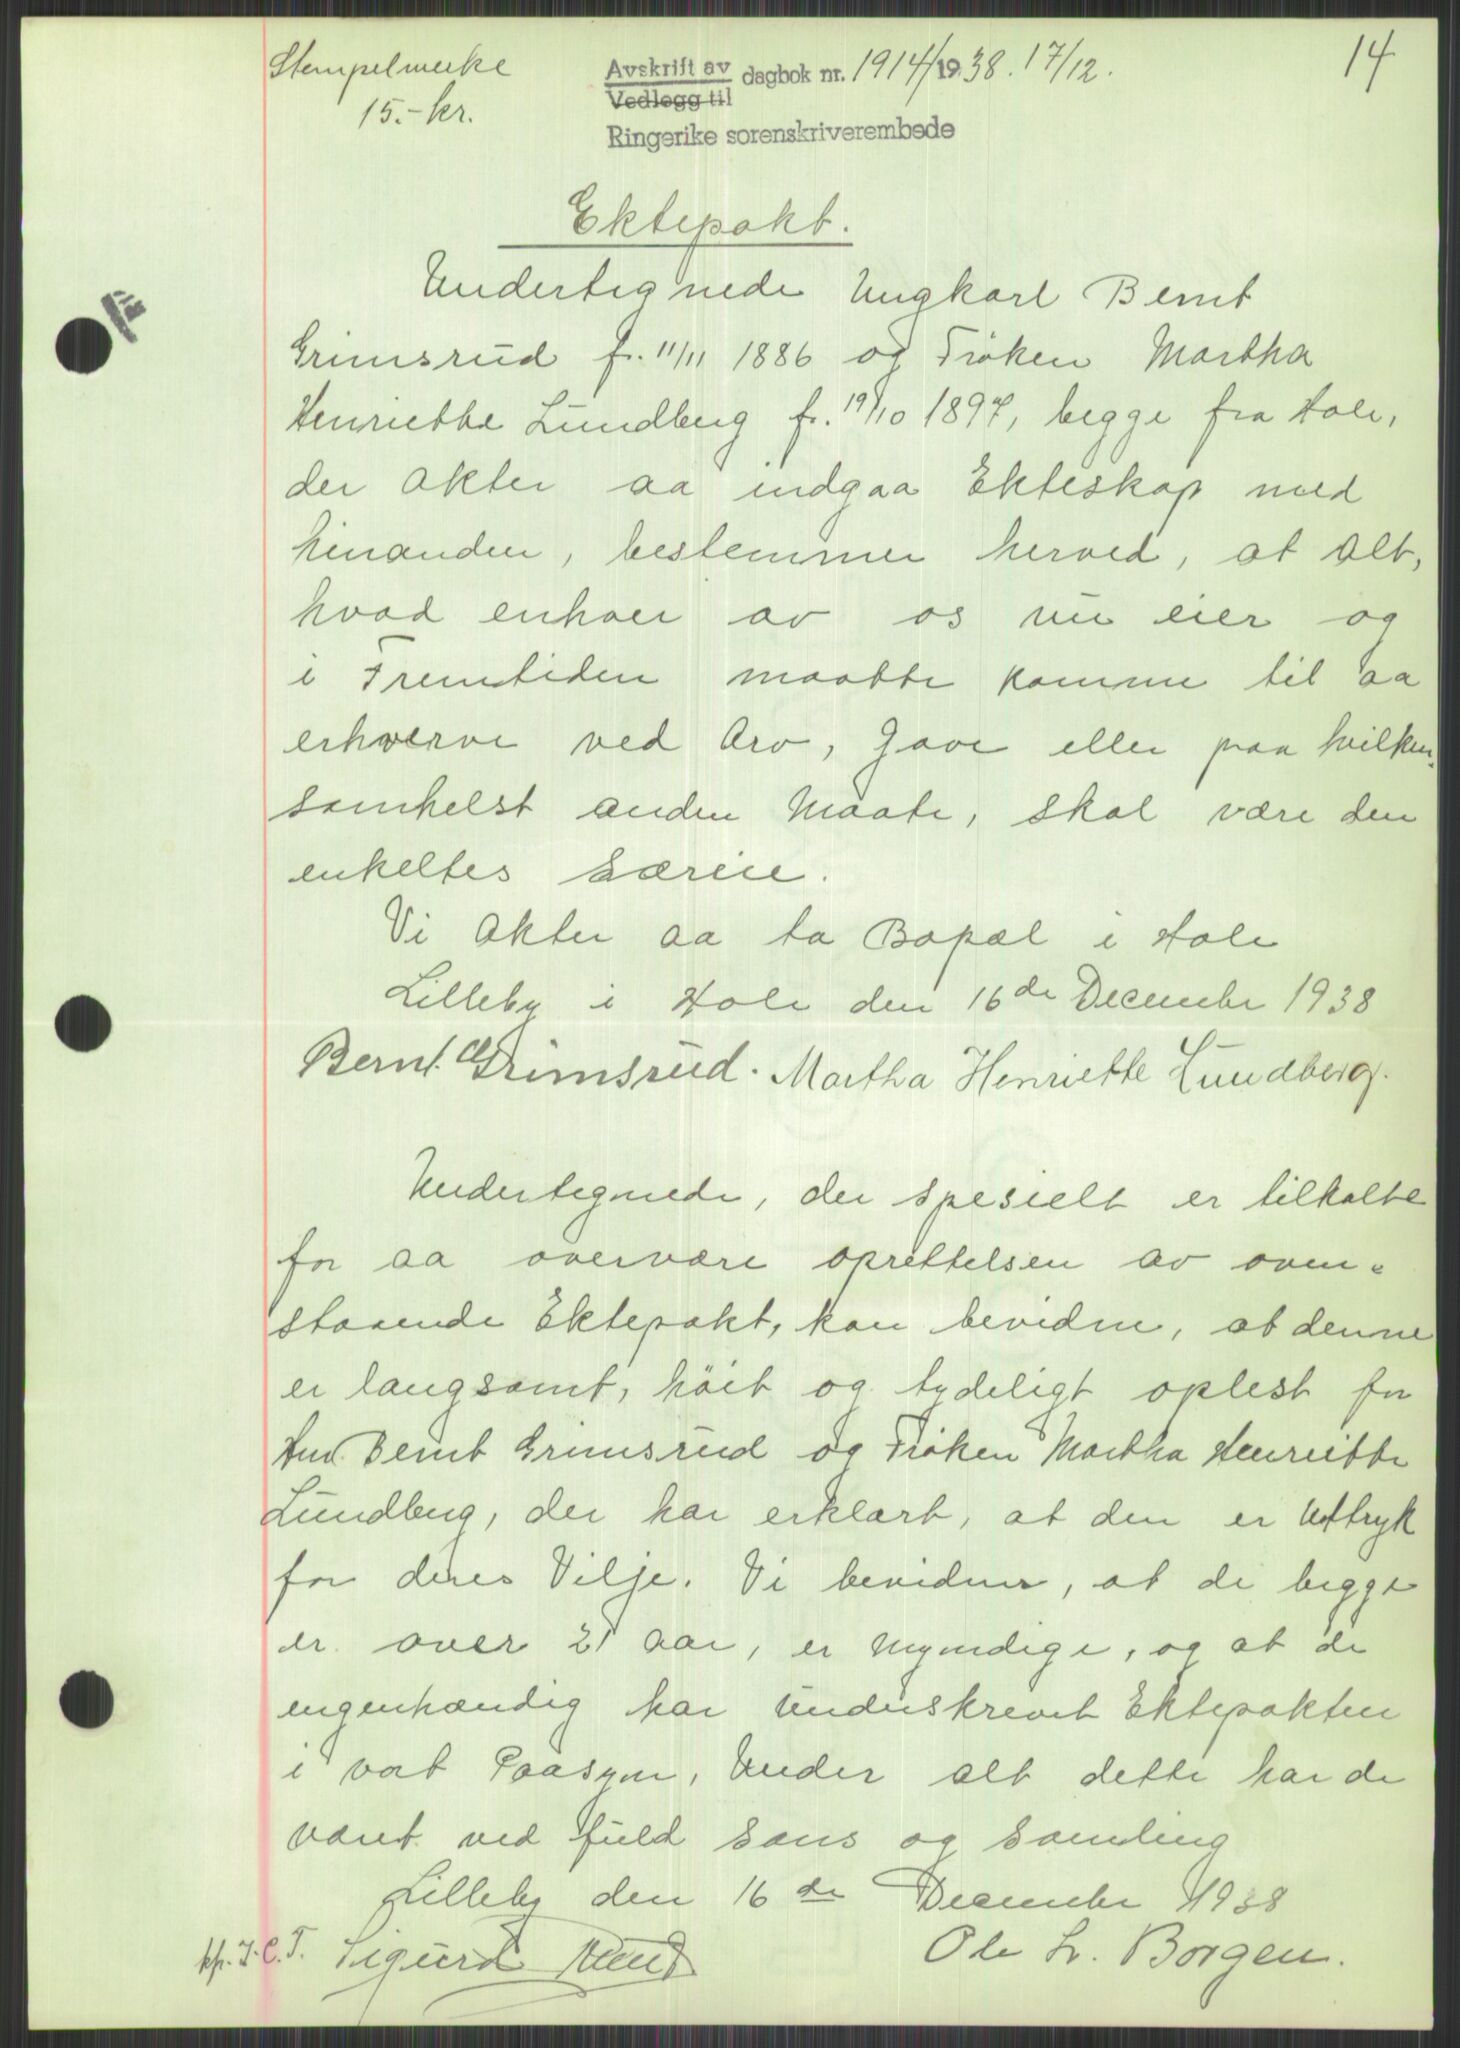 Stempelmerke
15.- kr.
Avskrift av
Vedlegg til
dagbok nr. 1914/1938. 17/12.
Ringerike sorenskriverembede
14
Ektepakt.
Undertegnede Ungkarl Bernt
Grimsrud f. 11/11 1886 og Frøken Martha
Henriette Lundberg f. 19/10 1897, begge fra Hole,
der akter aa indgaa Ekteskap med
hinanden, bestemmer herved, at alt,
hvad enhver av os nu eier og
i Fremtiden maatte komme til aa
erhverve ved Arv, Gave eller paa hvilken-
somhelst anden Maate, skal være den
enkeltes særeie.
Vi akter aa ta Bopæl i Hole
Lilleby i Hole den 16de December 1938
Bernt Grimsrud. Martha Henriette Lundberg.
Undertegnede, der spesielt er tilkalte
for aa overvære oprettelsen av oven-
staaende Ektepakt, kan bevidne, at denne
er langsomt, høit og tydeligt oplest for
Hr. Bernt Grimsrud og Frøken Martha Henriette
Lundberg, der har erklært, at den er Uttryk
for deres Vilje. Vi bevidner, at de begge
er over 21 aar, er Myndige, og at de
engenhændig har Underskrevet Ektepakten
i vort Paasyn, Under alt dette har de
været ved fuld sans og samling
Lilleby den 16de December 1938
Sigurd Ole L. Borgen.